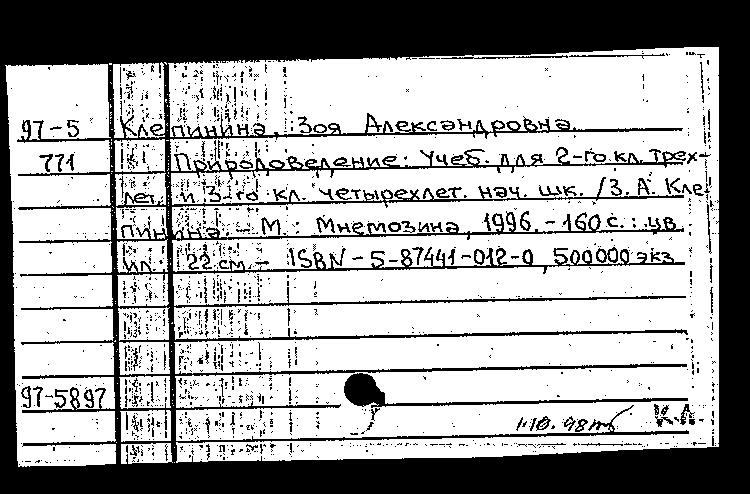 97-5 Клепинина, Зоя Александровна.
771 Природоведение: Учеб. для 2-го кл. трех-
лет. и 3-го кл. четырехлет. нач. шк. / З. А. Кле-
пинина. - М. : Мнемозина, 1996. - 160 с. : цв.
ил. 22 см. - ISBN - 5-87441-012-0, 500000 экз.
97-5897
К.Л.